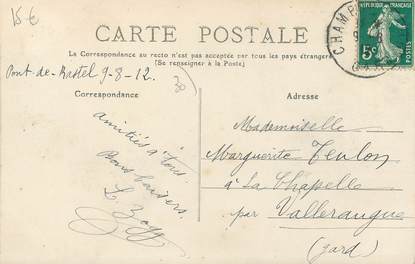 15 €
CARTE POSTALE
La Correspondance au recto n'est pas acceptée par tous les pays étrangers
(Se renseigner à la Poste)
Pont-de-Rastel 9-8-12.
30
Correspondance
Adresse
RÉPUBLIQUE FRANÇAISE
5c
CHAMB
amitiés à tous
Bons baisers.
Mademoiselle
Marguerite Teulon
à La Chapelle
par Valleraugue
(Gard)